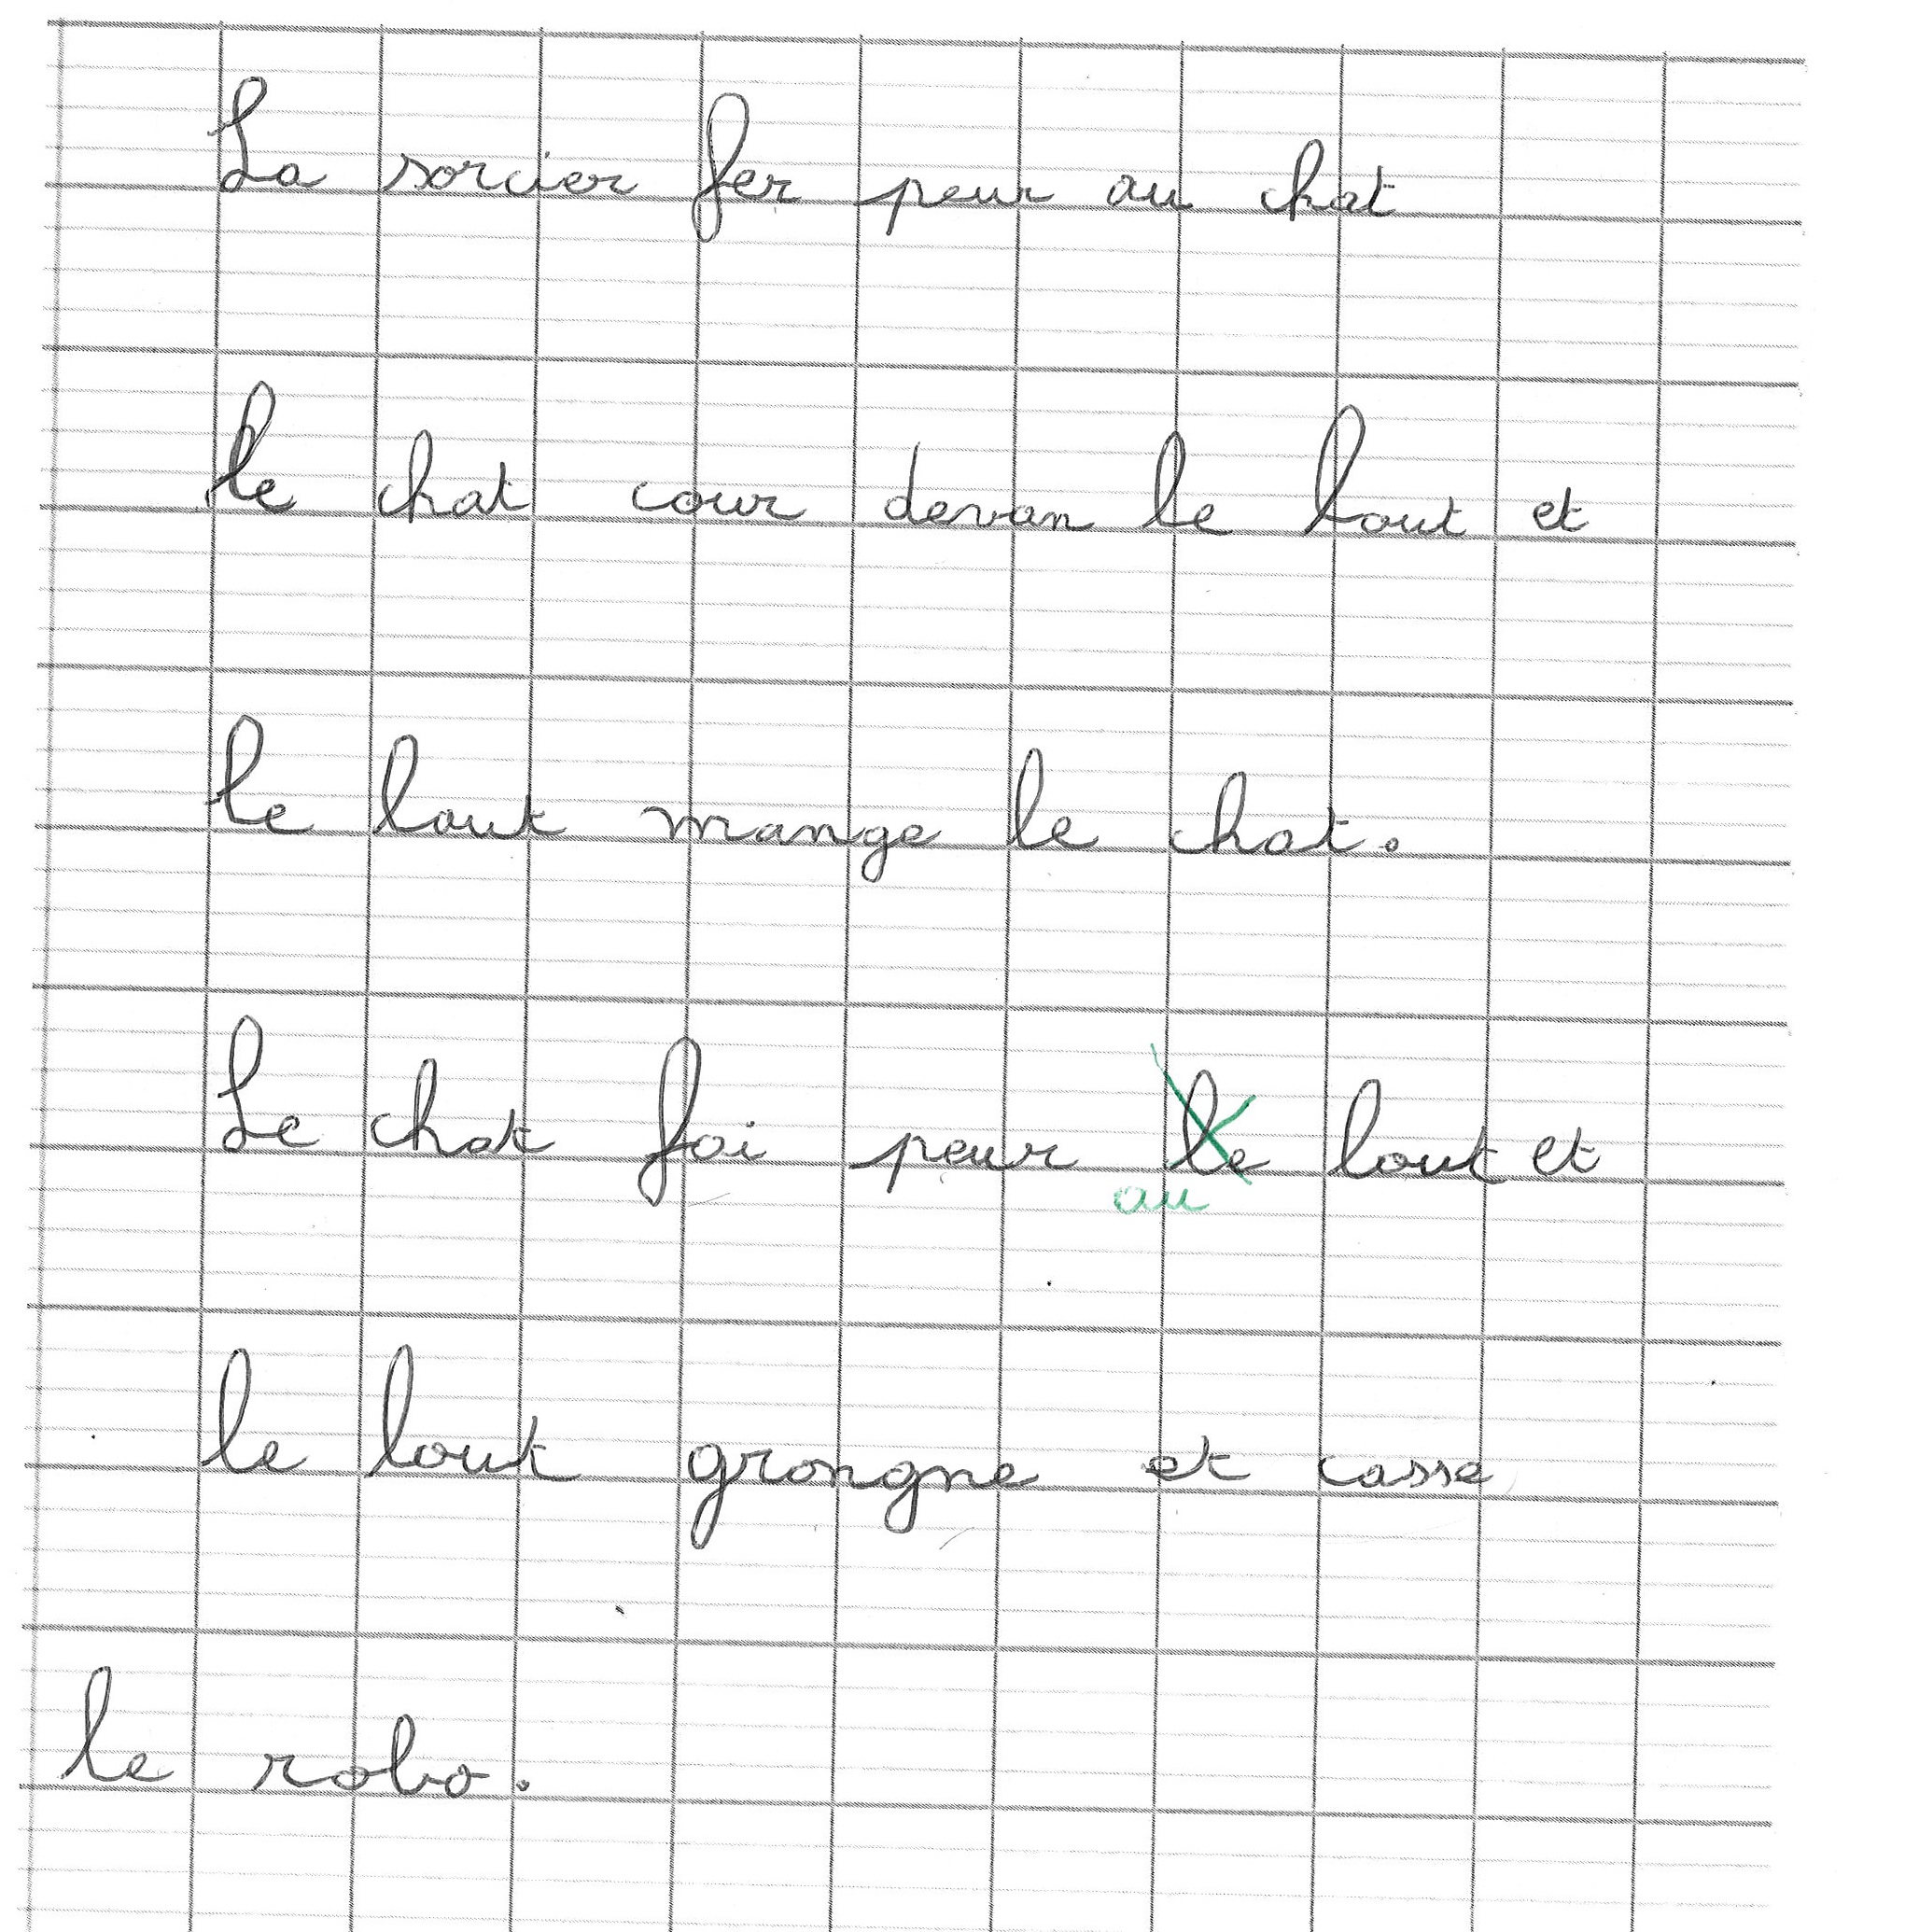 La sorcier fer peur au chat
le chat cour devan le lout et
le lout mange le chat.
Le chat fai peur le lout et
au
le lout grongne et casse
le robo.